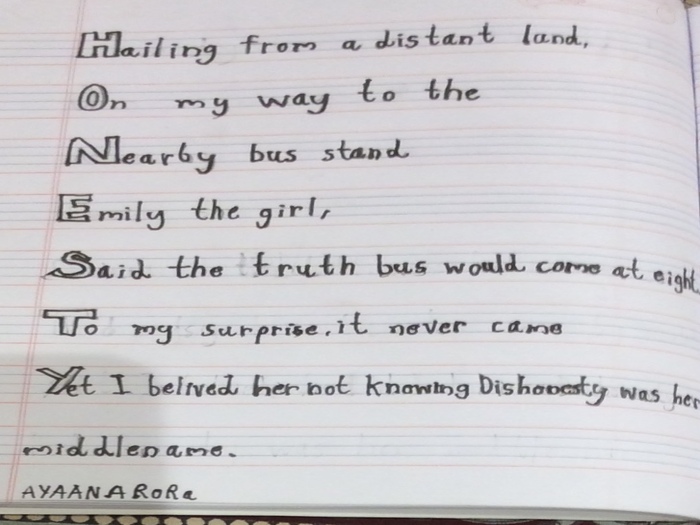 Hailing from a distant land,
On my way to the
Nearby bus stand
Emily the girl,
Said the truth bus would come at eight
To my surprise, it never came
Yet I belived her not knowing Dishonesty was her
middlename.
AYAAN ARORa